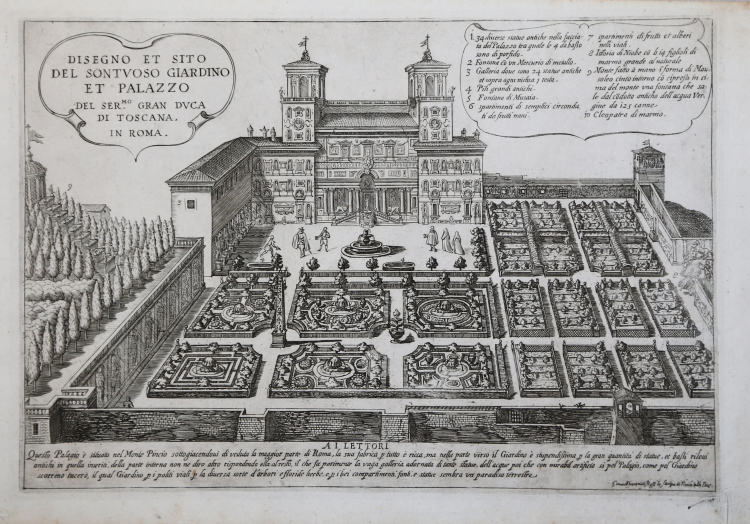 DISEGNO ET SITO
DEL SONTVOSO GIARDINO
ET PALAZZO
DEL SER.MO GRAN DVCA
DI TOSCANA.
IN ROMA.
1 34 diuerse statue antiche nella faccia
ta del Palazzo tra quale le 4 da basso
sono di porfido.
2 Fontana cō vn Mercurio di metallo.
3 Galleria doue sono 24 statue antiche
et sopra ogni nichia 3 teste.
4 Pili grandi antichi.
5 Fontane di Musaia.
6 partimenti di semplici circonda
ti de frutti nani.
7 partimenti di frutti et alberi
nelli viali.
8 Istoria di Niobe cō li 14 figlioli di
marmo grande al naturale
9 Monte fatto à mano ī forma di Mau
soleo cinto intorno cō cipressi in ci
ma del monte vna fontana che sa
le dal cōdotto anticho dell acqua Ver
gine da 125 canne.
10 Cleopatra di marmo.
3
A I LETTORI
Questo Palagio è situato nel Monte Pincio sottogiacendoui di veduta la maggior parte di Roma, la sua fabrica p tutto è ricca, ma nella parte verso il Giardino è stupendissima p la gran quantita di statue, et bassi rilieui
antichi in quella inserti, della parte interna non ne dirò altro rispondendo ella al resto, il che fa parimente la vaga galleria adornata di tante statue, dell acque poi che con mirabil artificio si pel Palagio, come pel Giardino
scorreno tacerò, il qual Giardino p i politi viali p la diuersa sorte d'arbori e floride herbe, e p i bei compartimenti, fonti e statue sembra un paradiso terrestre.